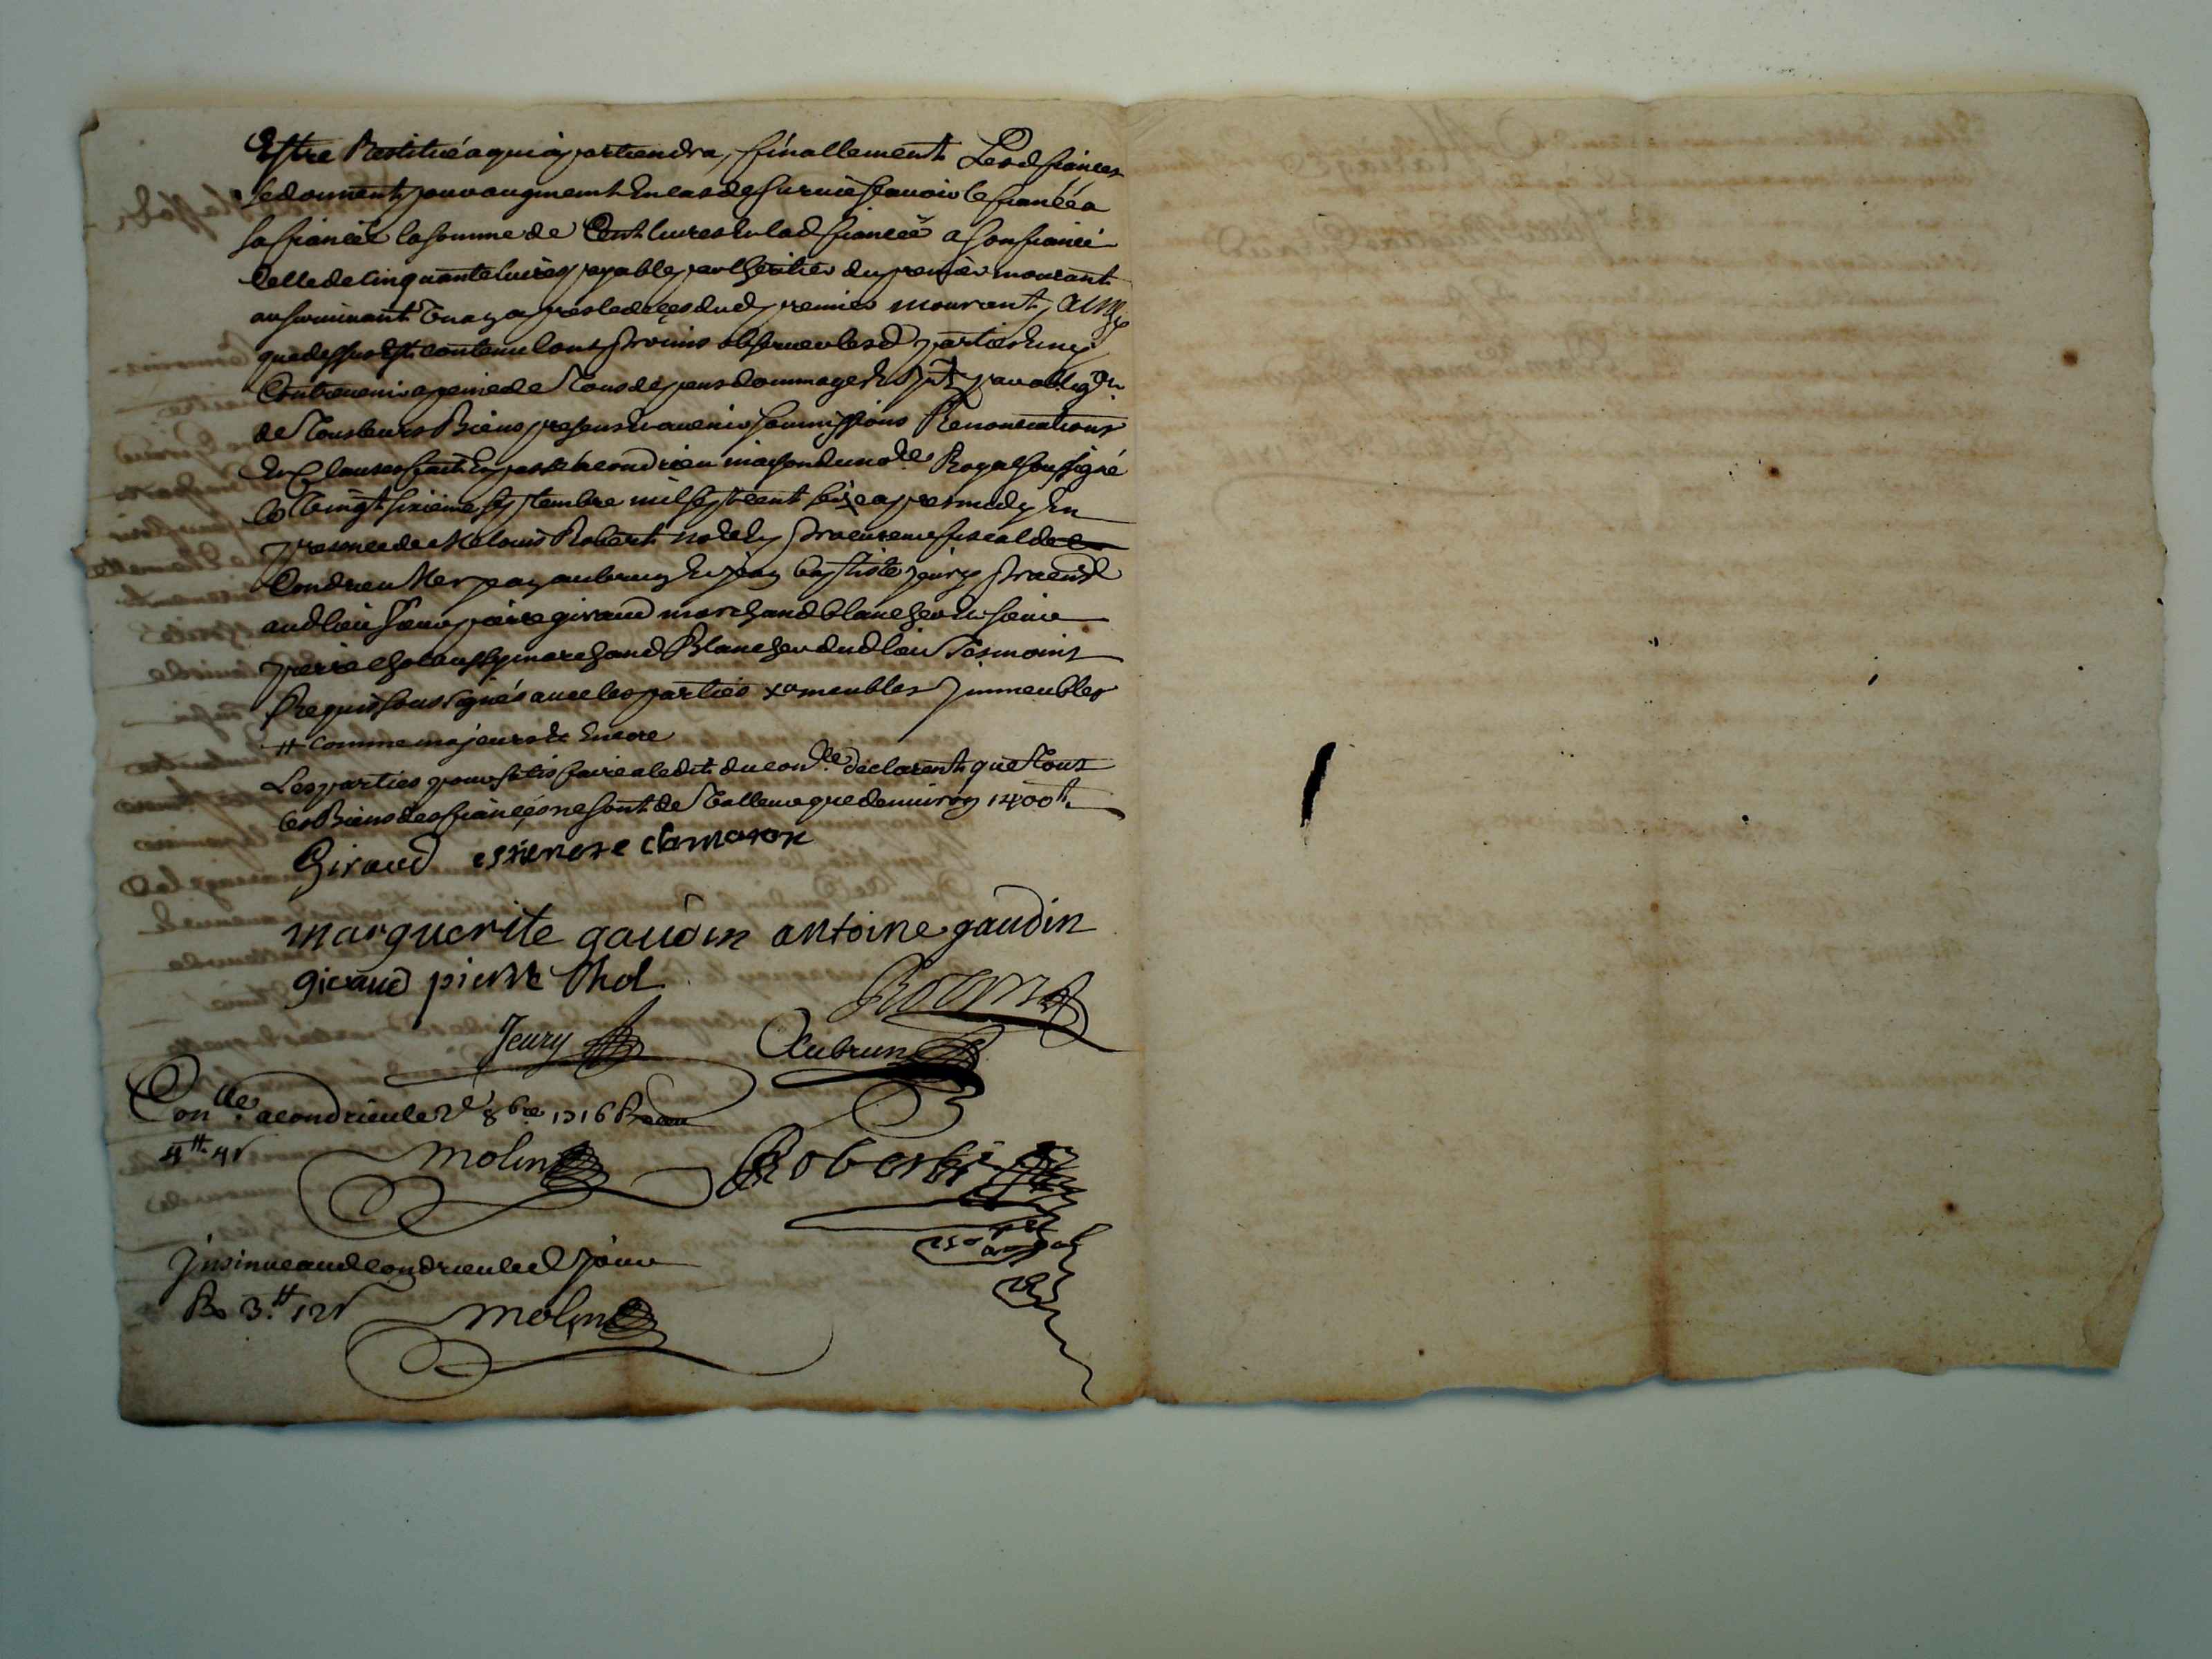 Estre Restitué a qui apartiendra, finallement Lesd fiances
se donnent pour augment En cas de survie scavoir le fiancé a
sa fiancée la somme de Cent livres Et lad fiancée a son fiancé
Celle de Cinquante livres payable par lheritier du premier mourant
au survivant Un an apres le deces dud premier mourant, Ainsy
que dessus Est contenu lont promis observer lesd parties Et ny
Contrevenir a peine de Tous depens dommages Et
de Tous leurs Biens presens Et avenir soumissions Renonciations
Et Clauses fait Et passé a condrieu maison du nore Royal soussigné
le Vingt sixieme septembre mil sept cent seize apres midy En
presence de Me louis Robert nore Et procureur fiscal de
Condrieu Me jean aubrun Et jean baptiste jeury
aud lieu sieur pierre giraud marchand blancher Et sieur
pierre marchand Blancher dud lieu Tesmoins
Requis soussignés avec les parties x a meubles Immeubles
# comme majeurs Et Encore
Les parties pour satisfaire a ledit du conlle declarent que Tous
les Biens des fiancés ne sont de Valleur que denviron 1400 tt
Giraud estienne clamaron
marguerite gaudin antoine gaudin
giraud pierre Chol
Jeury Aubrun
Conlle a condrieu le 2e 8bre 1716 Receu
4tt 4s molin Robert
Insinue aud condrieu led jour
Re 3tt 12s molin